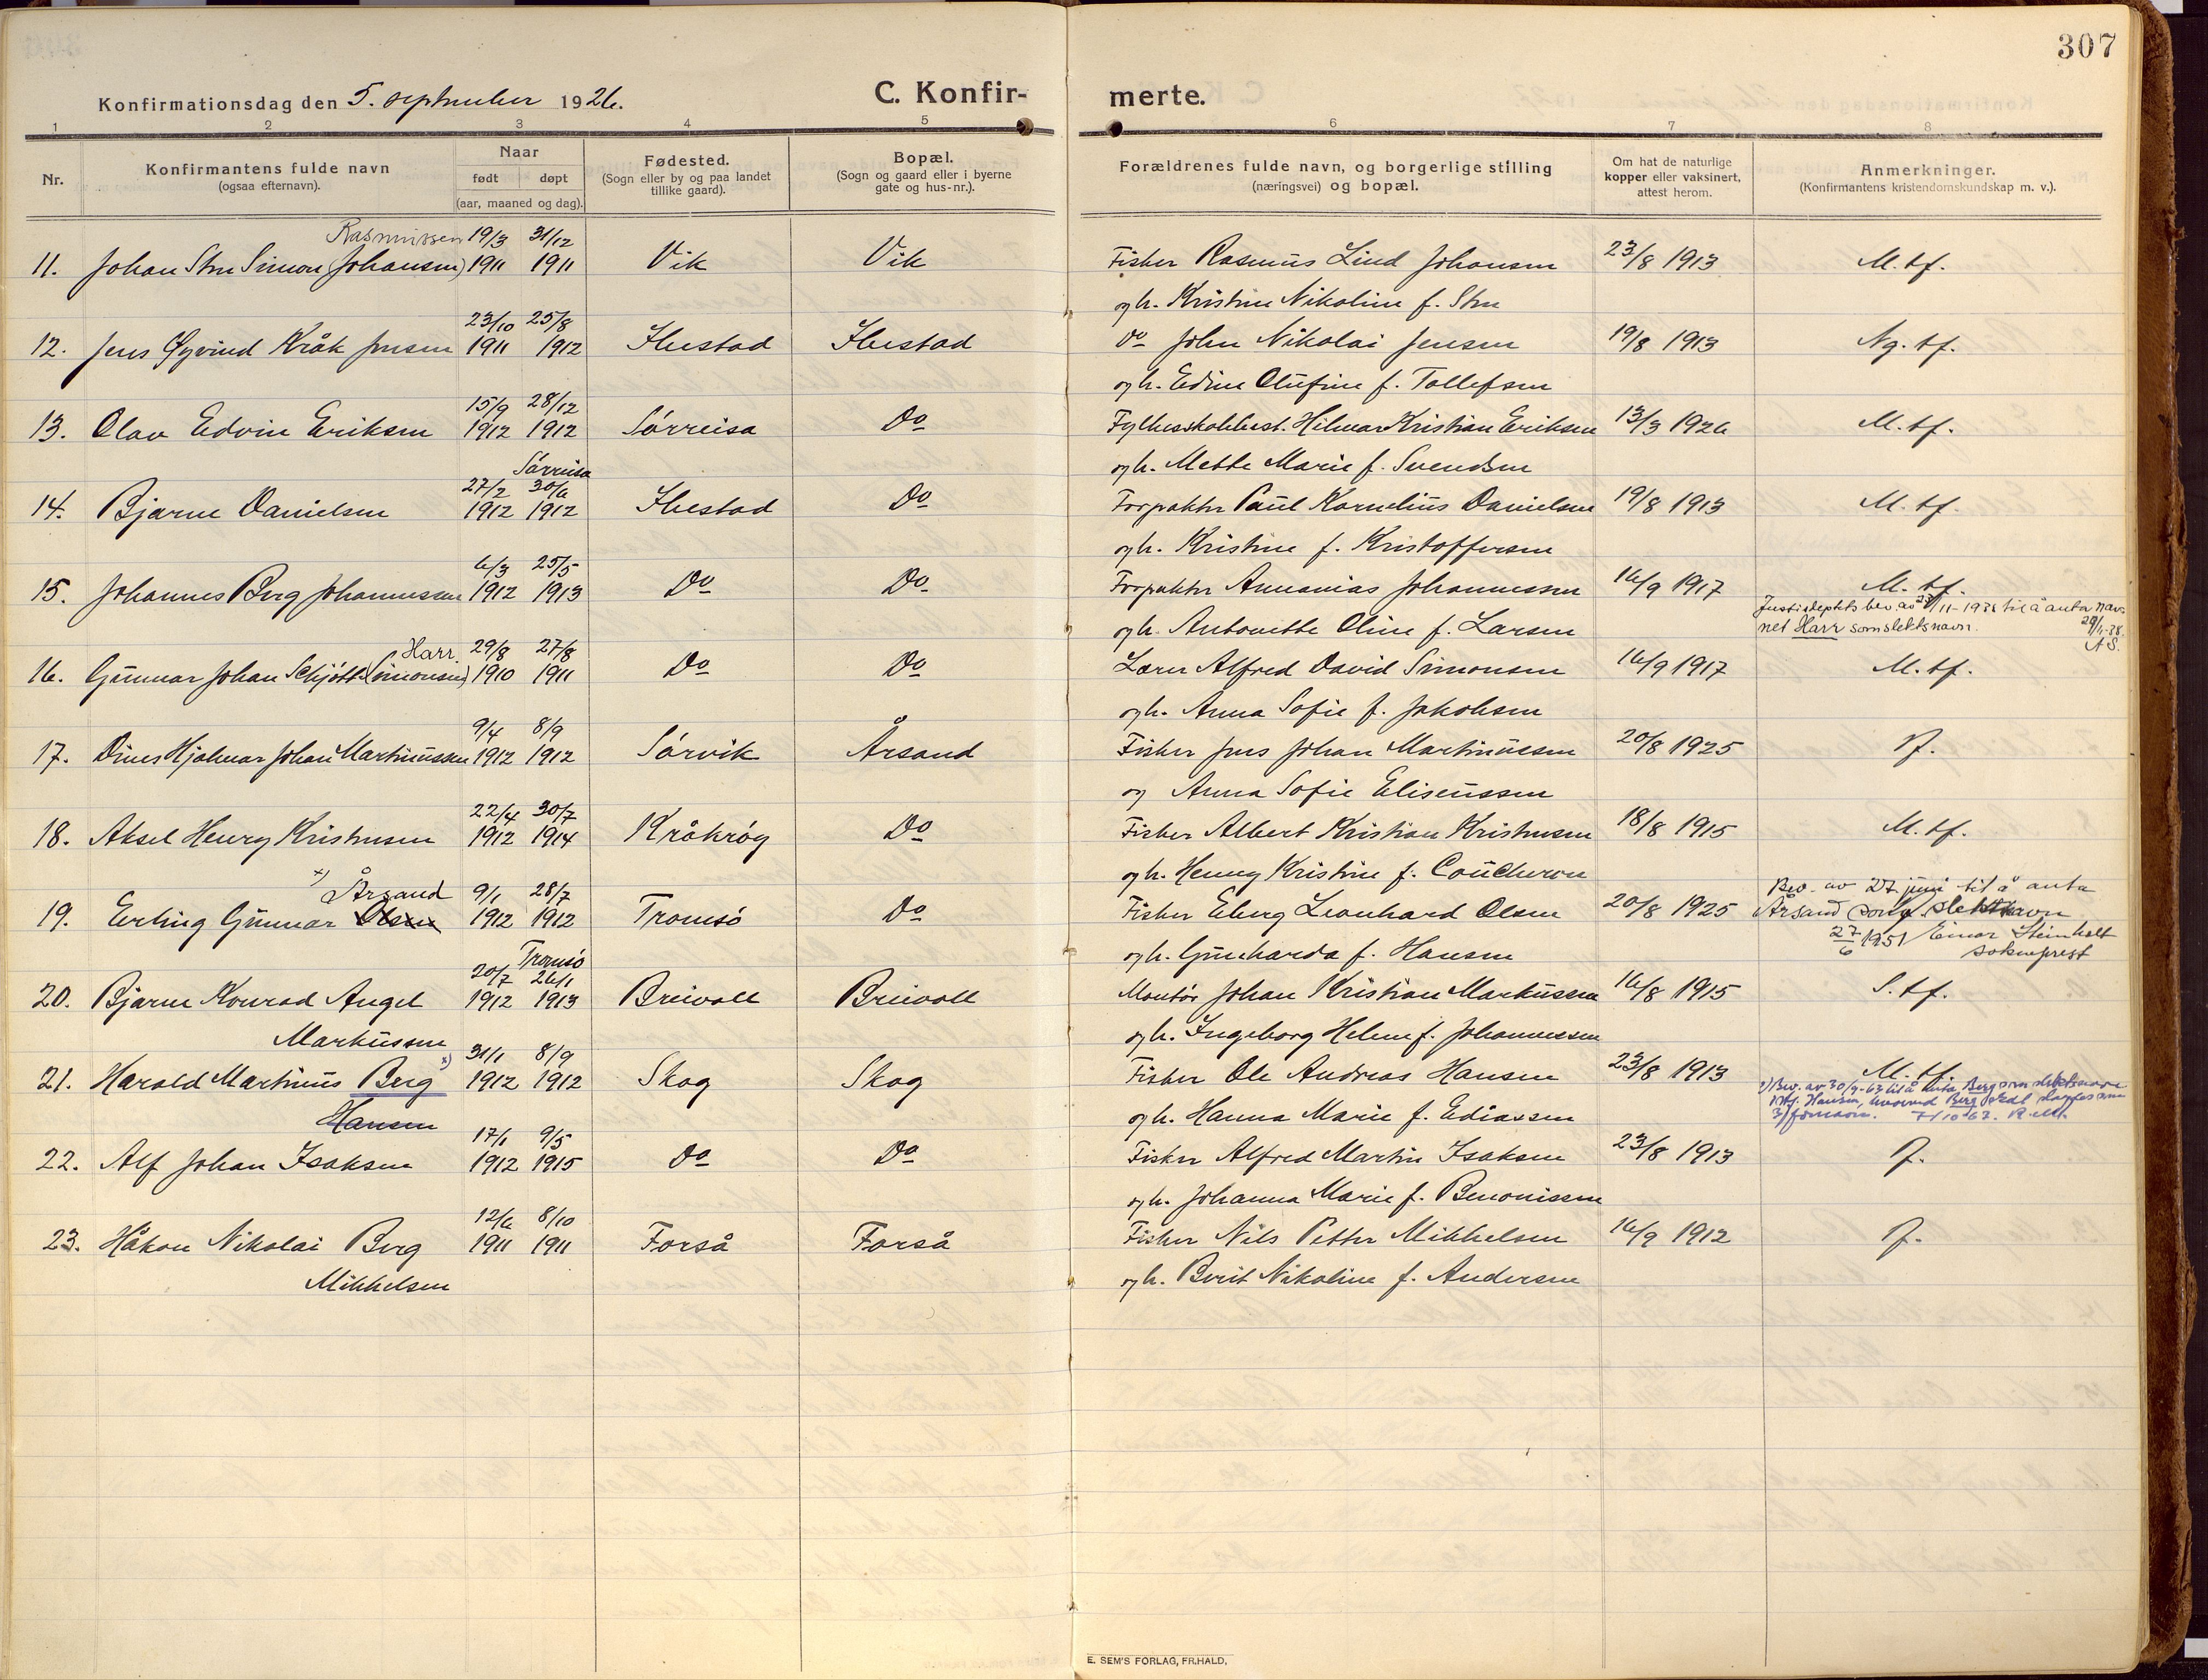 307
Konfirmationsdag den 5. september 1926.
C. Konfir-
merte.
1 2 3 4 5 6 7 8
Nr.
Konfirmantens fulde navn
(ogsaa efternavn).
Naar
født døpt
(aar, maaned og dag).
Fødested.
(Sogn eller by og paa landet
tillike gaard).
Bopæl.
(Sogn og gaard eller i byerne
gate og hus-nr.).
Forældrenes fulde navn, og borgerlige stilling
(næringsvei) og bopæl.
Om hat de naturlige
kopper eller vaksinert,
attest herom.
Anmerkninger.
(Konfirmantens kristendomskundskap m. v.).
Rasmussen 19/3 31/12
11. Johan Stru Simon (Johansen) 1911 1911 Vik Vik Fisker Rasmus Lind Johansen 23/8 1913 M.tf.
og h. Kristine Nikoline f. Stru
23/10 25/8
12. Jens Øyvind Kråk Jensen 1911 1912 Ibestad Ibestad Do John Nikolai Jensen 19/8 1913 Ng.tf.
og h. Edine Olufine f. Tollefsen
15/9 28/12
13. Olav Edvin Eriksen 1912 1912 Sørreisa Do Fylkesskolebest. Hilmar Kristian Eriksen 13/3 1926 M.tf.
og h. Mette Marie f. Svendsen
Sørreisa
27/2 30/6
14. Bjarne Danielsen 1912 1912 Ibestad Do Forpakter Paul Kornelius Danielsen 19/8 1913 M.tf.
og h. Kristine f. Kristoffersen
6/3 25/5
15. Johannes Berg Johannessen 1912 1913 Do Do Forpakter Annanias Johannessen 16/9 1917 M.tf.
og h. Antonette Oline f. Larsen
Justisdeptets bev. av 23/11-1938 til å anta nav-
net Harr som slektsnavn. 29/11-38.
A S.
Harr. 29/8 27/8
16. Gunnar Johan Schjøtt (Simonsen) 1910 1911 Do Do Lærer Alfred David Simonsen 16/9 1917 M.tf.
og h. Anna Sofie f. Jakobsen
9/4 8/9
17. Dines Hjalmar Johan Martinussen 1912 1912 Sørvik Årsand Fisker Jens Johan Martinussen 20/8 1925
og Anna Sofie Eliseussen
22/4 30/7
18. Aksel Henry Kristensen 1912 1914 Kråkrøg Do Fisker Albert Kristian Kristensen 18/8 1915 M.tf.
og h. Henny Kristine f. Coucheron
x) Årsand 9/1 28/7
19. Erling Gunnar Olsen 1912 1912 Tromsø Do Fisker Eberg Leonhard Olsen 20/8 1925
og h. Gunharda f. Hansen
Bev. av 27. juni til å anta
Årsand som slektsnavn
27/6 1951 Einar Steinholt
sokneprest
Tromsø
20/7 26/1
20. Bjarne Konrad Angel 1912 1913 Breivoll Breivoll Montør Johan Kristian Markussen 16/8 1915 S.tf.
Markussen og h. Ingeborg Helene f. Johannessen
x) 31/1 8/9
21. Harald Martinus Berg 1912 1912 Skog Skog Fisker Ole Andreas Hansen 23/8 1913 M.tf.
Hansen og h. Hanna Marie f. Ediassen
x) Bev. av 30/9-63 til å anta Berg som slektsnavn
istf. Hansen, hvorved Berg skal sløyfes som
fornavn. 7/10 67. R.M.
17/1 9/5
22. Alf Johan Isaksen 1912 1915 Do Do Fisker Alfred Martin Isaksen 23/8 1913
og h. Johanna Marie f. Benonissen
12/6 8/10
23. Håkon Nikolai Berg 1911 1911 Forså Forså Fisker Nils Petter Mikkelsen 16/9 1912
Mikkelsen og h. Berit Nikoline f. Andersen
E. SEM'S FORLAG, FR.HALD.